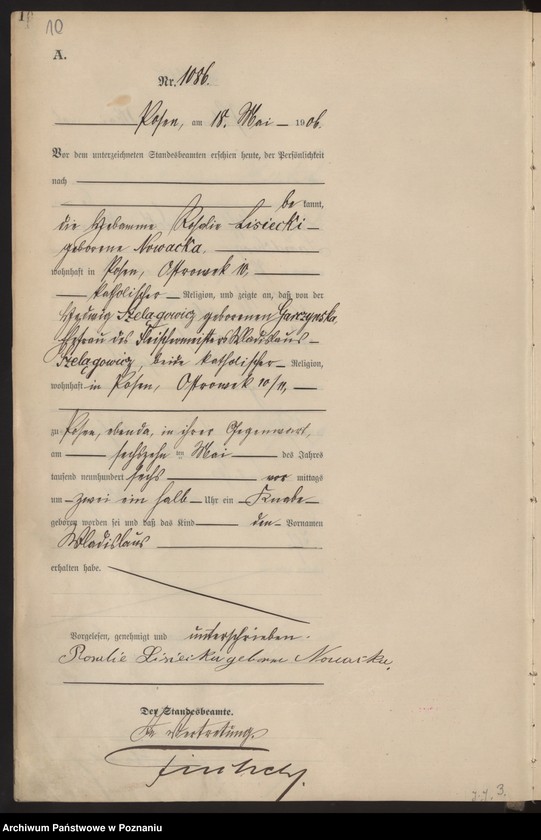 10
A.
Nr. 1086.
Posen, am 18. Mai 1906.
Vor dem unterzeichneten Standesbeamten erschien heute, der Persönlichkeit
nach
be kannt,
die Hebamme Rosalie Lisiecki
geborene Nowacka,
wohnhaft in Posen, Ostrowek 10,
katholischer Religion, und zeigte an, daß von der
Hedwig Szelągowicz geborenen Garczyńska,
Ehefrau des Fleischermeisters
Szelągowicz, beide katholischer Religion,
wohnhaft in Posen, Ostrowek 10/11,
zu Posen, ebenda, in ihrer Gegenwart,
am sechszehn ten Mai des Jahres
tausend neunhundert sechs vor mittags
um zwei ein halb Uhr ein Knabe
geboren worden sei und daß das Kind den Vornamen
Wladislaus
erhalten habe.
Vorgelesen, genehmigt und unterschrieben.
Rosalie Lisiecka geborne Nowacka.
Der Standesbeamte.
In Vertretung.
3.
Archiwum Państwowe w Poznaniu